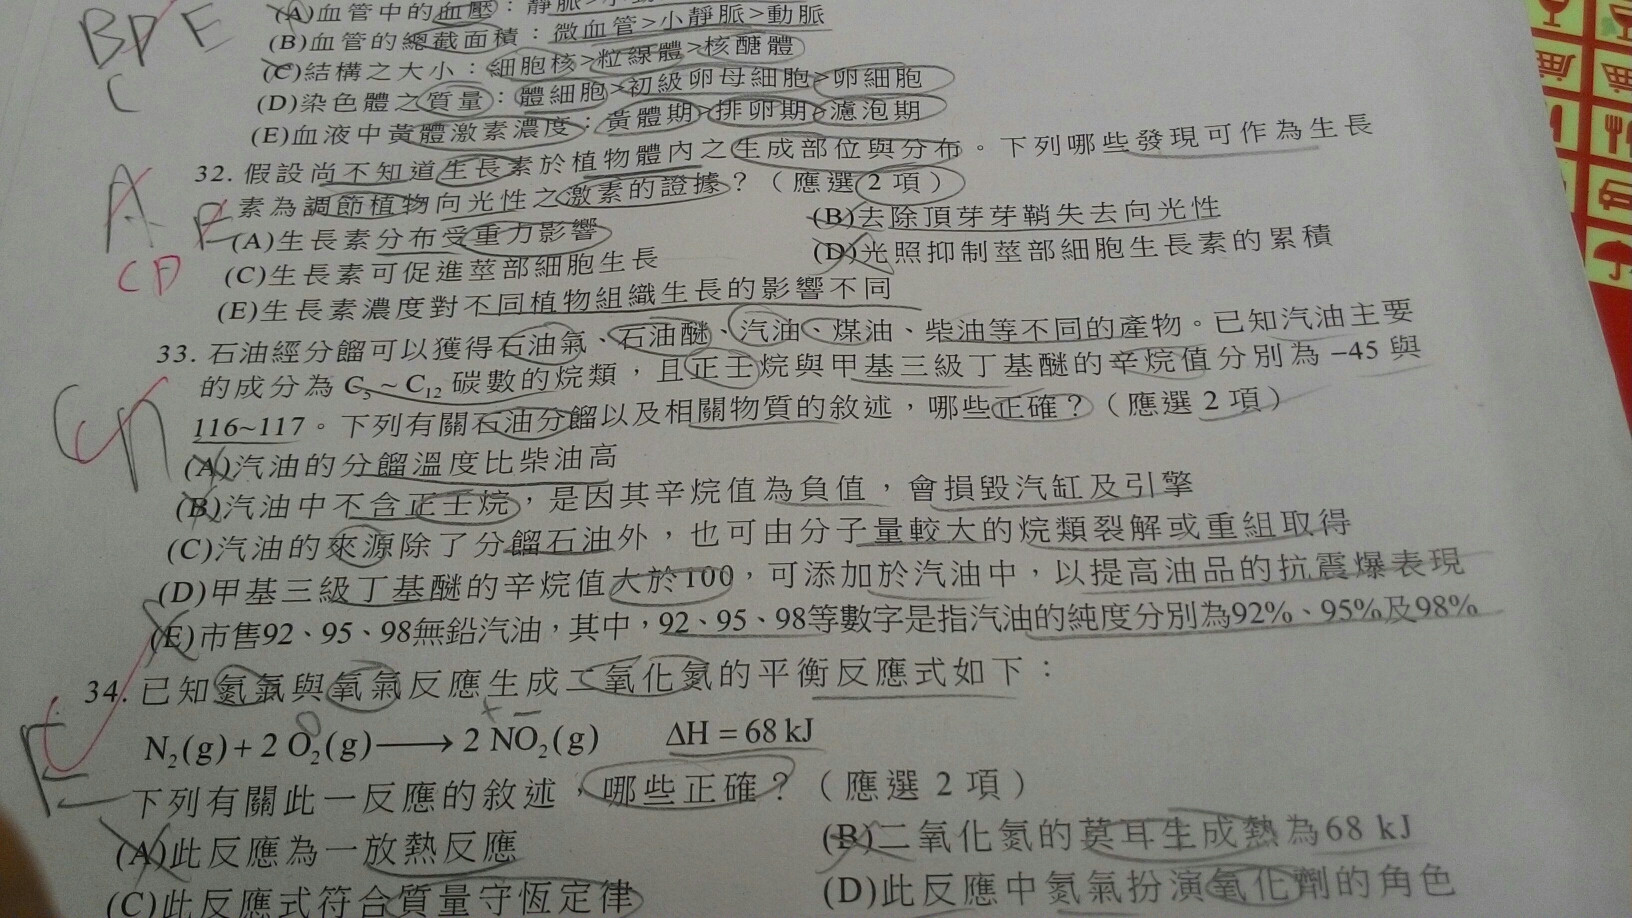 BDE
C
(A)血管中的血壓：靜脈>
(B)血管的總截面積：微血管>小靜脈>動脈
(C)結構之大小：細胞核>粒線體>核醣體
(D)染色體之質量：體細胞>初級卵母細胞>卵細胞
(E)血液中黃體激素濃度：黃體期>排卵期>濾泡期
32. 假設尚不知道生長素於植物體內之生成部位與分布。下列哪些發現可作為生長
素為調節植物向光性之激素的證據？（應選 2 項）
A
CD
(A)生長素分布受重力影響 (B)去除頂芽芽鞘失去向光性
(C)生長素可促進莖部細胞生長 (D)光照抑制莖部細胞生長素的累積
(E)生長素濃度對不同植物組織生長的影響不同
33. 石油經分餾可以獲得石油氣、石油醚、汽油、煤油、柴油等不同的產物。已知汽油主要
的成分為 C5 ~ C12 碳數的烷類，且正壬烷與甲基三級丁基醚的辛烷值分別為 −45 與
116~117。下列有關石油分餾以及相關物質的敘述，哪些正確？（應選 2 項）
(A)汽油的分餾溫度比柴油高
(B)汽油中不含正壬烷，是因其辛烷值為負值，會損毀汽缸及引擎
(C)汽油的來源除了分餾石油外，也可由分子量較大的烷類裂解或重組取得
(D)甲基三級丁基醚的辛烷值大於100，可添加於汽油中，以提高油品的抗震爆表現
(E)市售92、95、98無鉛汽油，其中，92、95、98等數字是指汽油的純度分別為92%、95%及98%
34. 已知氮氣與氧氣反應生成二氧化氮的平衡反應式如下：
N2(g) + 2 O2(g) ⟶ 2 NO2(g) ΔH = 68 kJ
下列有關此一反應的敘述，哪些正確？（應選 2 項）
(A)此反應為一放熱反應 (B)二氧化氮的莫耳生成熱為68 kJ
(C)此反應式符合質量守恆定律 (D)此反應中氮氣扮演氧化劑的角色